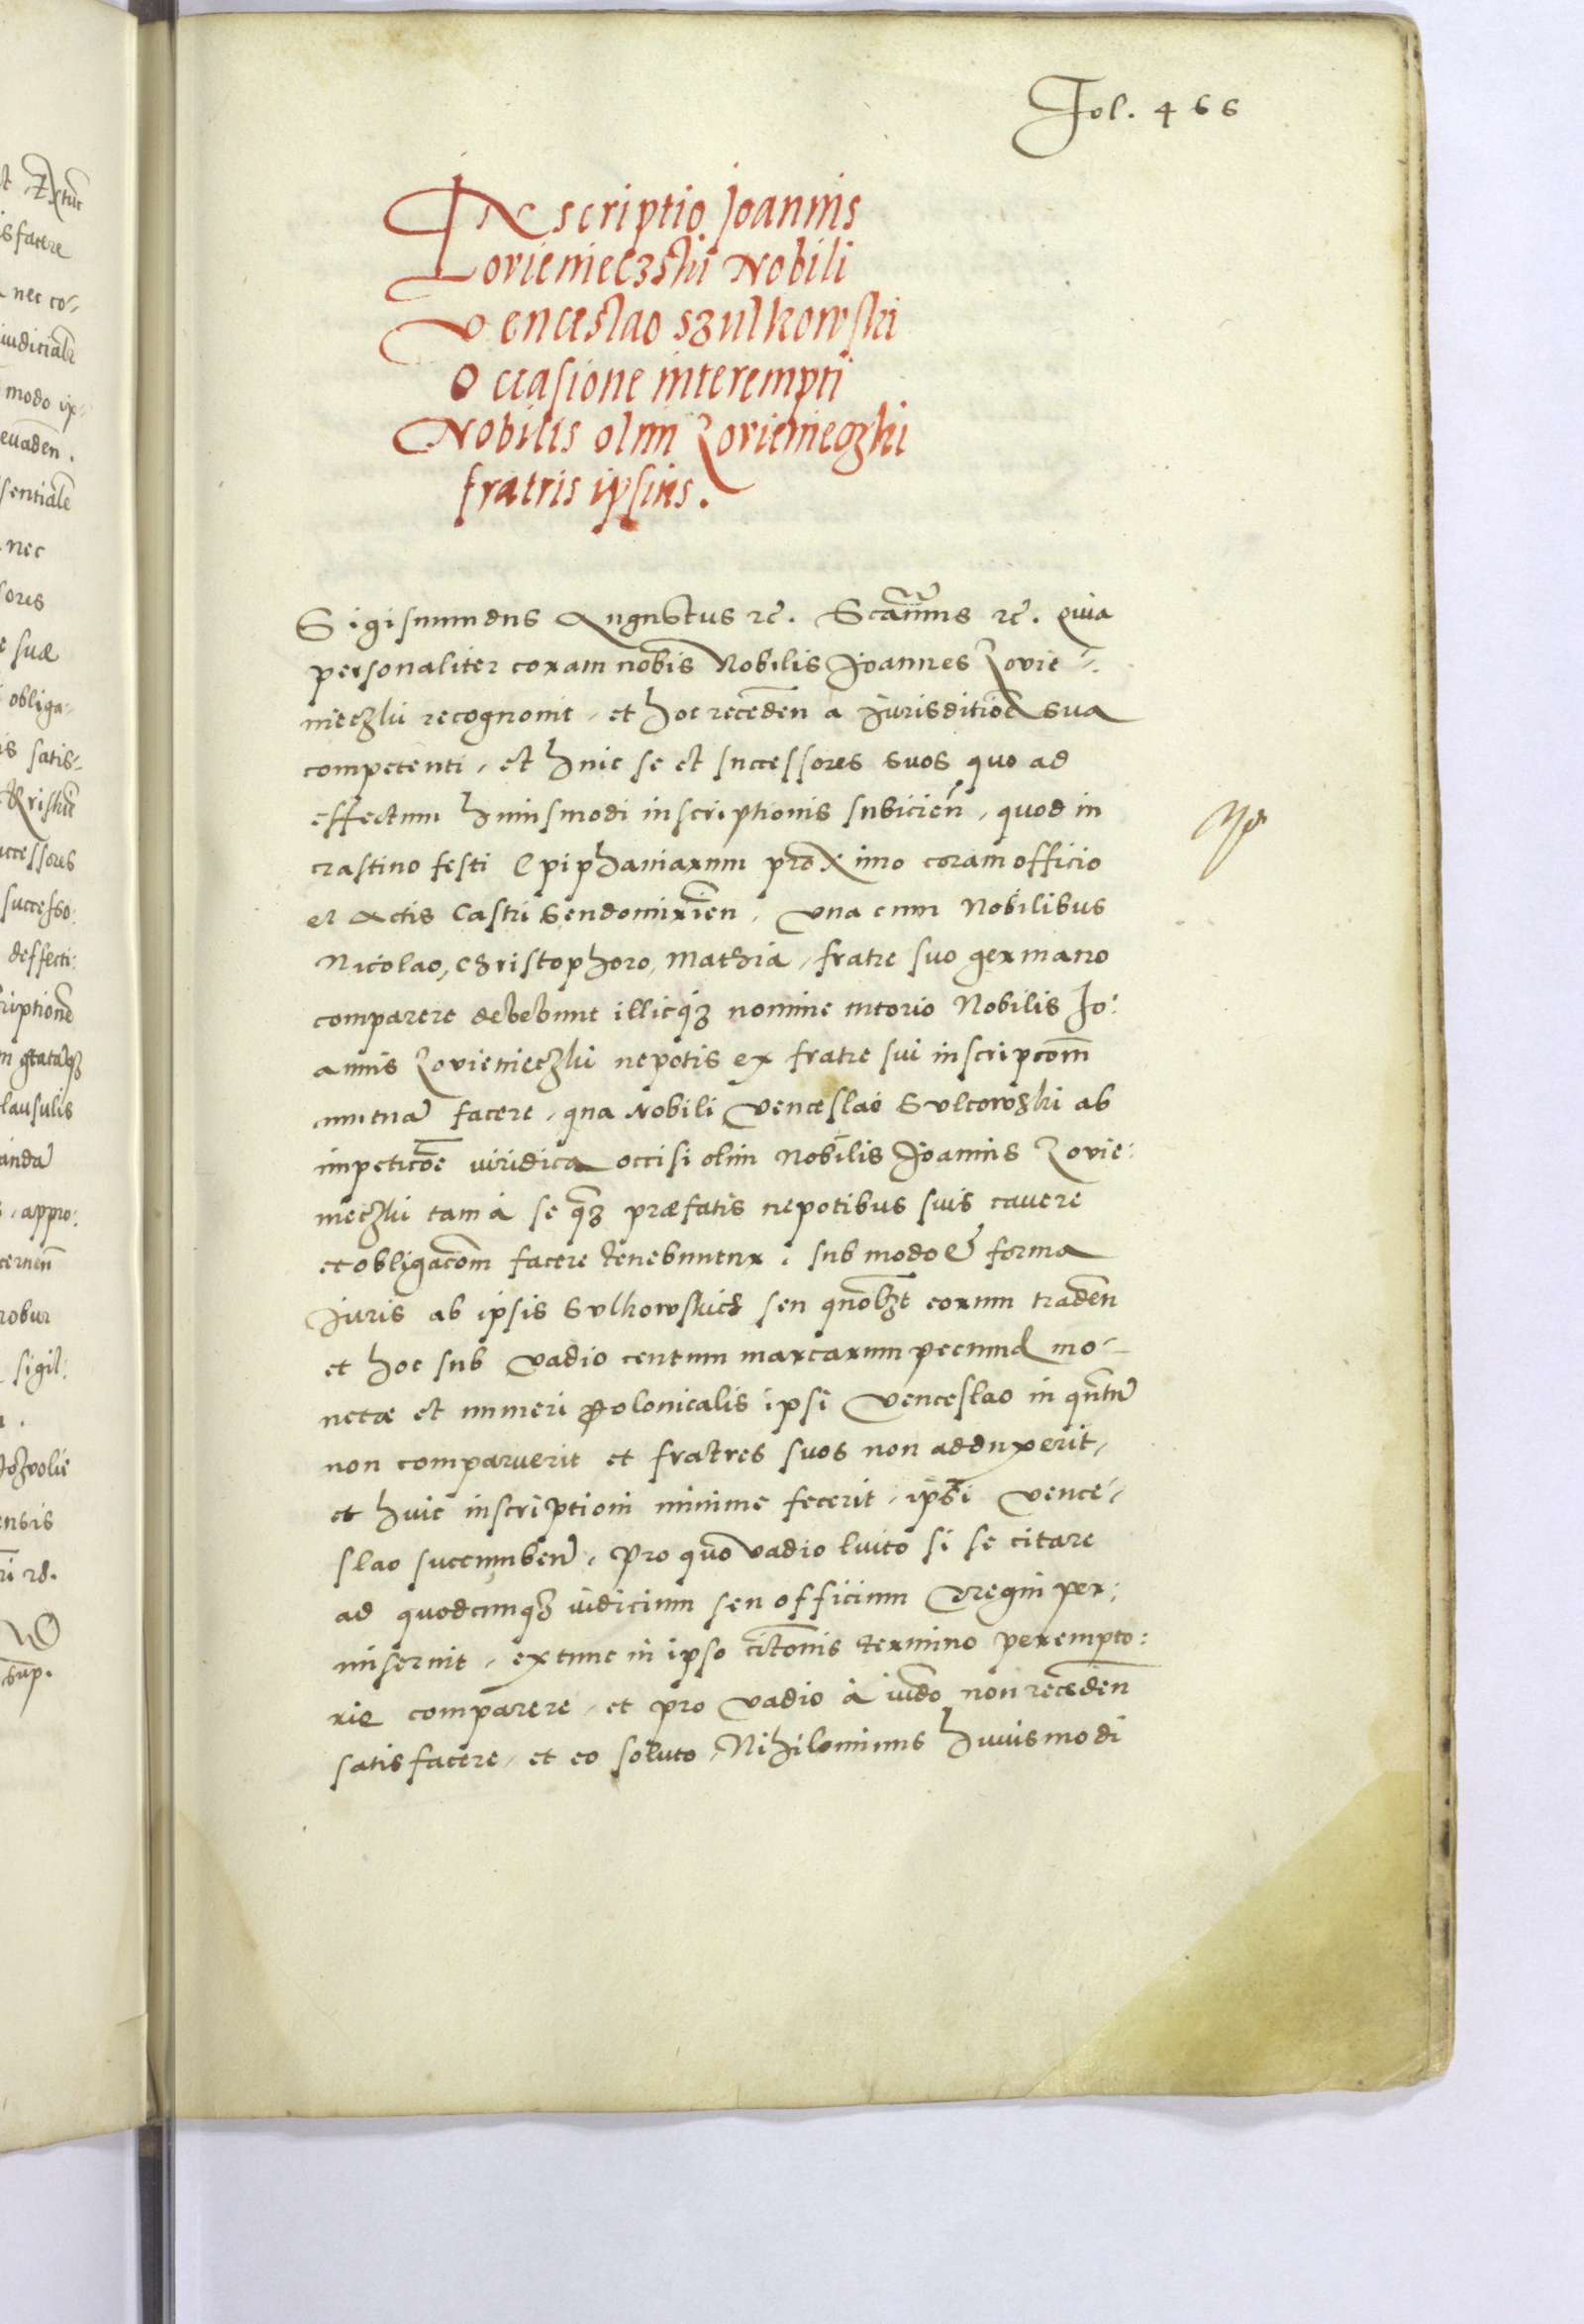 Fol. 466
INscriptio Joannis
Zovienieczski Nobili
Venceslao Szulkowski
Occasione interempti
Nobilis olim Zovienieczki
fratris ipsius.
Sigismundus Augustus rc̃. Scãimus rc̃. Quia
personaliter coram nobis Nobilis Joannes Zovie-
nieczki recognovit, et hoc receden̄ a Jurisditioē sua
competenti, et huic se et successores suos quo ad
effectum huiusmodi inscriptionis subicien̄, quod in
crastino festi Epiphaniarum proximo coram officio
et Actis Castri Sendomirien̄. Una cum Nobilibus
Nicolao, Christophoro, Mathia, fratre suo germano
comparere debebunt illicq3 nomine tutorio Nobilis Jo:
annis Zovienieczki nepotis ex fratre sui inscripcōm
mutuā facere, qua Nobili Venceslao Sulcowski ab
impeticōe viridica occisi olim Nobilis Joannis Zovie:
nieczki tam à se q̄3 præfatis nepotibus suis cavere
et obligacōm facere tenebuntur. sub modo et forma
Juris ab ipsis Sulkowskich seu quōb3t eorum traden̄
et hoc sub vadio centum marcarum pecuniæ mo-
netæ et numeri Polonicalis ipsi Venceslao in qn̄tū
non comparuerit et fratres suos non adduxerit,
et huic inscriptioni minime fecerit, ipsi Vence-
slao succumben̄. Pro quo vadio luito si se citare
ad quodcunq3 iudicium seu officium Regni per:
miserint, extunc in ipso citōnis termino perempto:
rie comparere, et pro vadio à iud̄o non receden̄
satisfacere, et eo soluto, Nihilominus huiusmodi